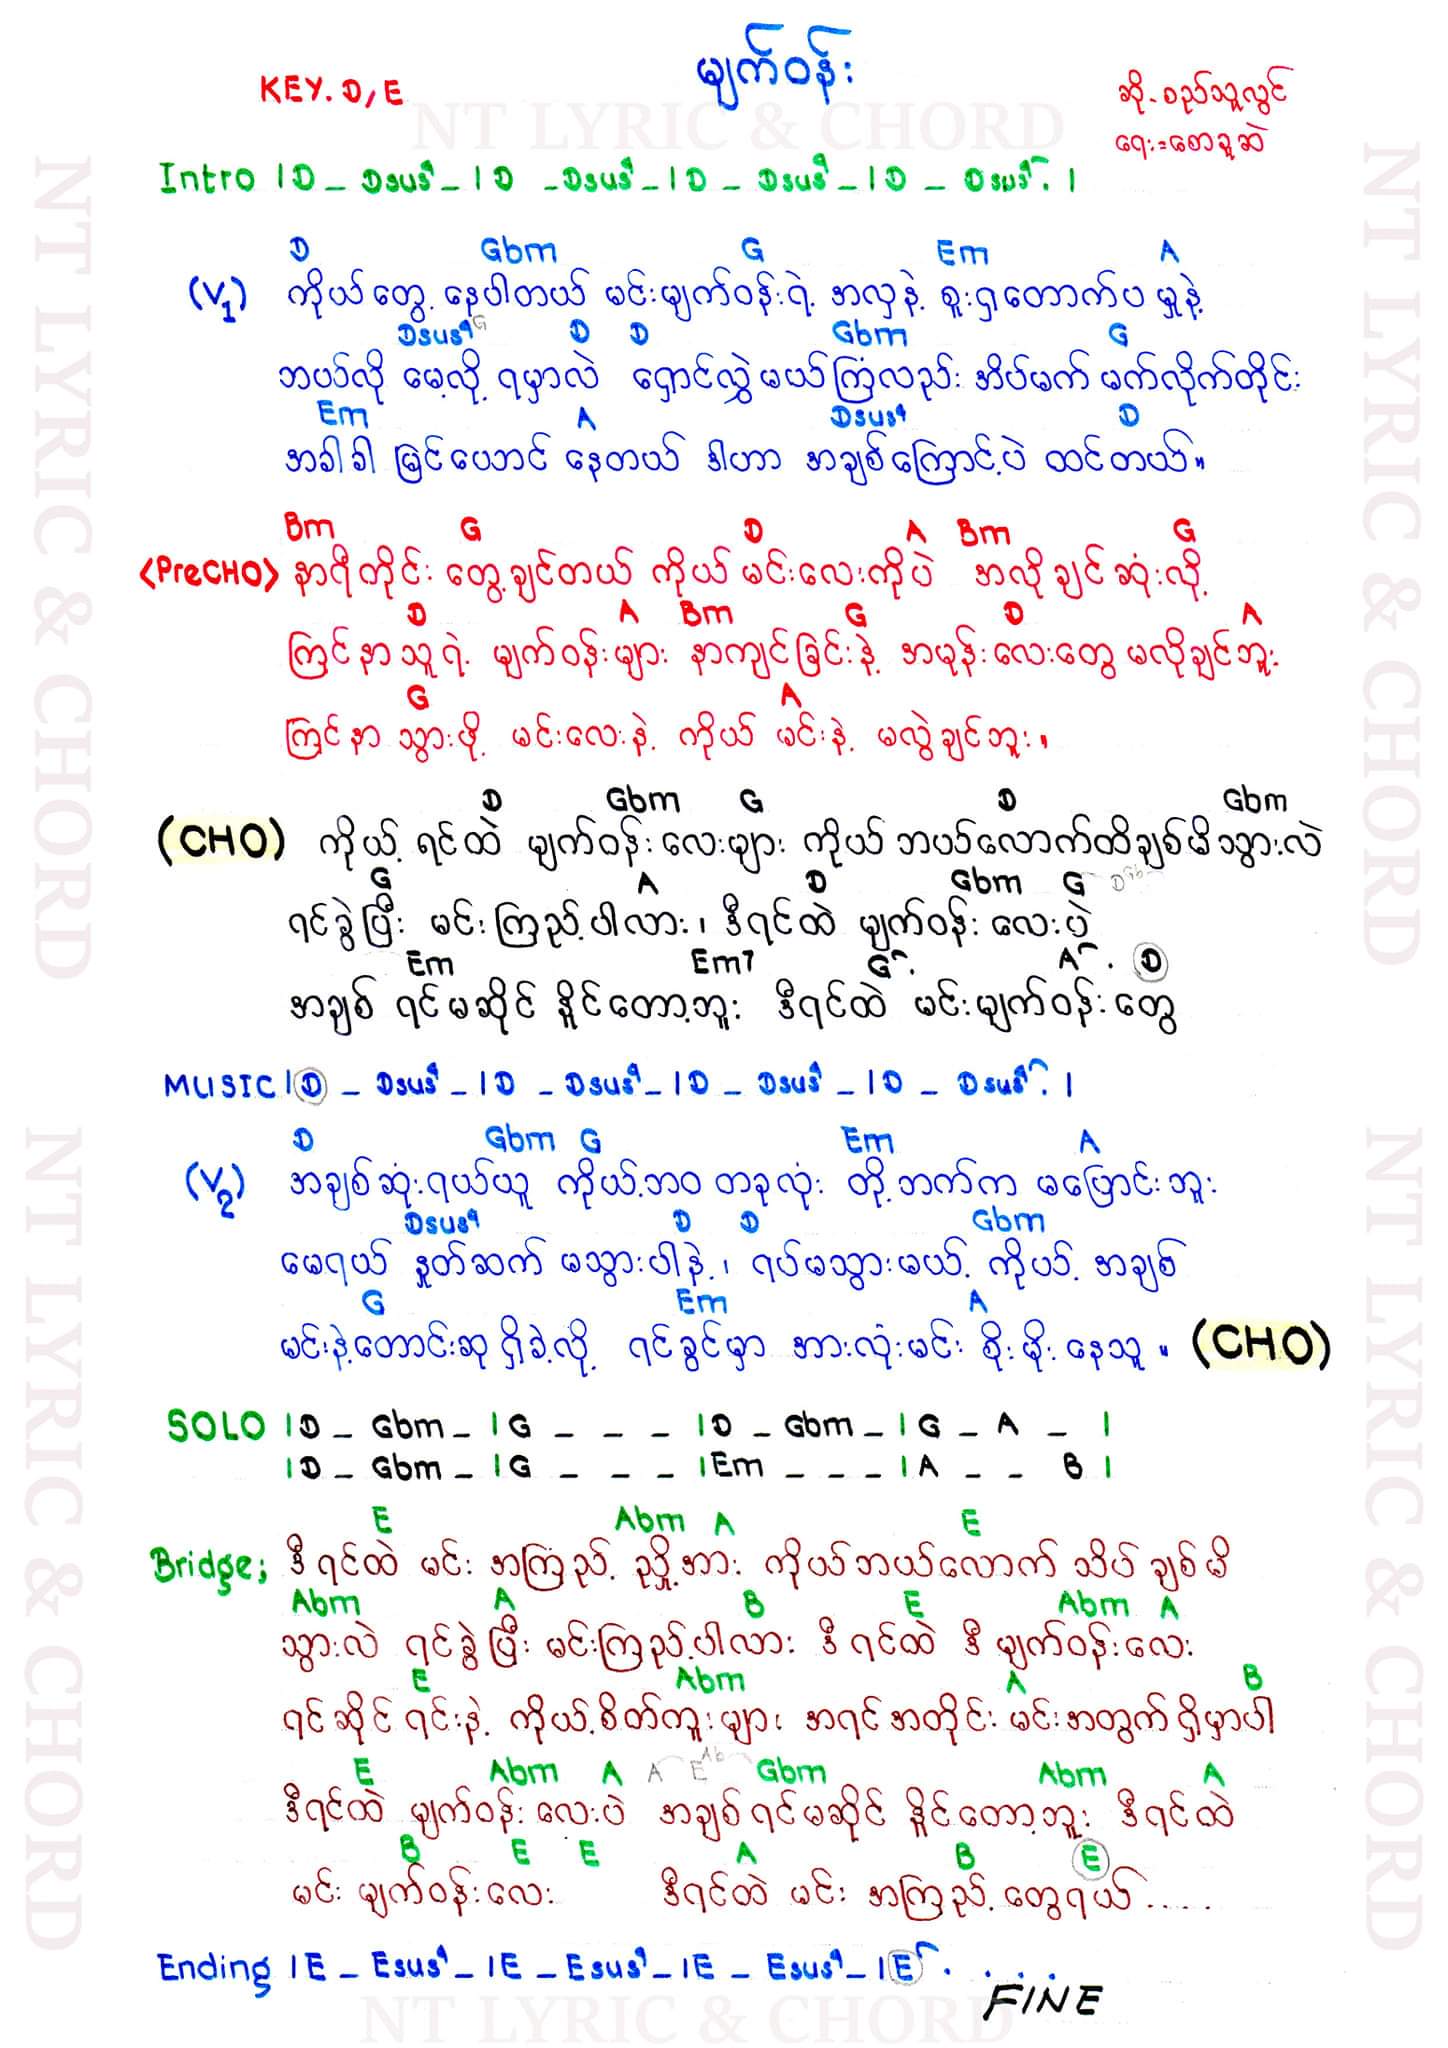 မျက်ဝန်း
KEY. D, E
ဆို - စည်သူလွင်
ရေး = စောခူဆဲ
NT LYRIC & CHORD
Intro | D _ Dsus4 _ | D _ Dsus4 _ | D _ Dsus4 _ | D _ Dsus4 . |
D Gbm G Em A
(V1) ကိုယ်တွေ့ နေပါတယ် မင်းမျက်ဝန်းရဲ့ အလှနဲ့ စူးရှတောက်ပ မှုနဲ့
Dsus4 G D D Gbm G
ဘယ်လို မေ့လို့ ရမှာလဲ ရှောင်လွှဲမယ်ကြံလည်း အိပ်မက် မက်လိုက်တိုင်း
Em A Dsus4 D
အခါခါ မြင်ယောင် နေတယ် ဒါဟာ အချစ်ကြောင့်ပဲ ထင်တယ်။
Bm G D A Bm G
<PreCHO> နာရီတိုင်း တွေ့ချင်တယ် ကိုယ် မင်းလေးကိုပဲ အလိုချင်ဆုံးလို့
D A Bm G D A
ကြင်နာသူရဲ့ မျက်ဝန်းများ နာကျင်ခြင်းနဲ့ အမုန်းလေးတွေ မလိုချင်ဘူး
G A
ကြင်နာ သွားဖို့ မင်းလေးနဲ့ ကိုယ် မင်းနဲ့ မလွဲချင်ဘူး။
D Gbm G D Gbm
(CHO) ကိုယ့် ရင်ထဲ မျက်ဝန်းလေးများ ကိုယ် ဘယ်လောက်ထိချစ်မိသွားလဲ
G A D Gbm G
ရင်ခွဲပြီး မင်းကြည့်ပါလား၊ ဒီရင်ထဲ မျက်ဝန်းလေးပဲ
Em Em7 G . A . D
အချစ် ရင်မဆိုင် နိူင်တော့ဘူး ဒီရင်ထဲ မင်းမျက်ဝန်းတွေ
MUSIC | D _ Dsus4 _ | D _ Dsus4 _ | D _ Dsus4 _ | D _ Dsus4 . |
D Gbm G Em A
(V2) အချစ်ဆုံးရယ်ယူ ကိုယ့်ဘဝ တခုလုံး တို့ဘက်က မပြောင်းဘူး
Dsus4 D D Gbm
မေရယ် နှုတ်ဆက် မသွားပါနဲ့၊ ရပ်မသွားမယ့် ကိုယ့် အချစ်
G Em A
မင်းနဲ့တောင်းဆု ရှိခဲ့လို့ ရင်ခွင်မှာ အားလုံးမင်း စိုးမိုးနေသူ။ (CHO)
SOLO | D _ Gbm _ | G _ _ _ | D _ Gbm _ | G _ A _ |
| D _ Gbm _ | G _ _ _ | Em _ _ _ | A _ _ B |
E Abm A E
Bridge; ဒီရင်ထဲ မင်း အကြည့် ညှို့အား ကိုယ်ဘယ်လောက် သိပ် ချစ်မိ
Abm A B E Abm A
သွားလဲ ရင်ခွဲပြီး မင်းကြည့်ပါလား ဒီရင်ထဲ ဒီ မျက်ဝန်းလေး
E Abm A B
ရင်ဆိုင် ရင်းနဲ့ ကိုယ့်စိတ်ကူးများ အရင်အတိုင်း မင်းအတွက် ရှိမှာပါ
E Abm A A E Ab Gbm Abm A
ဒီရင်ထဲ မျက်ဝန်းလေးပဲ အချစ်ရင်မဆိုင် နိူင်တော့ဘူး ဒီရင်ထဲ
B E E A B E
မင်း မျက်ဝန်းလေး ဒီရင်ထဲ မင်း အကြည့်တွေရယ် .....
Ending | E _ Esus4 _ | E _ Esus4 _ | E _ Esus4 _ | E . . . .
FINE
NT LYRIC & CHORD
NT LYRIC & CHORD
NT LYRIC & CHORD
NT LYRIC & CHORD
NT LYRIC & CHORD